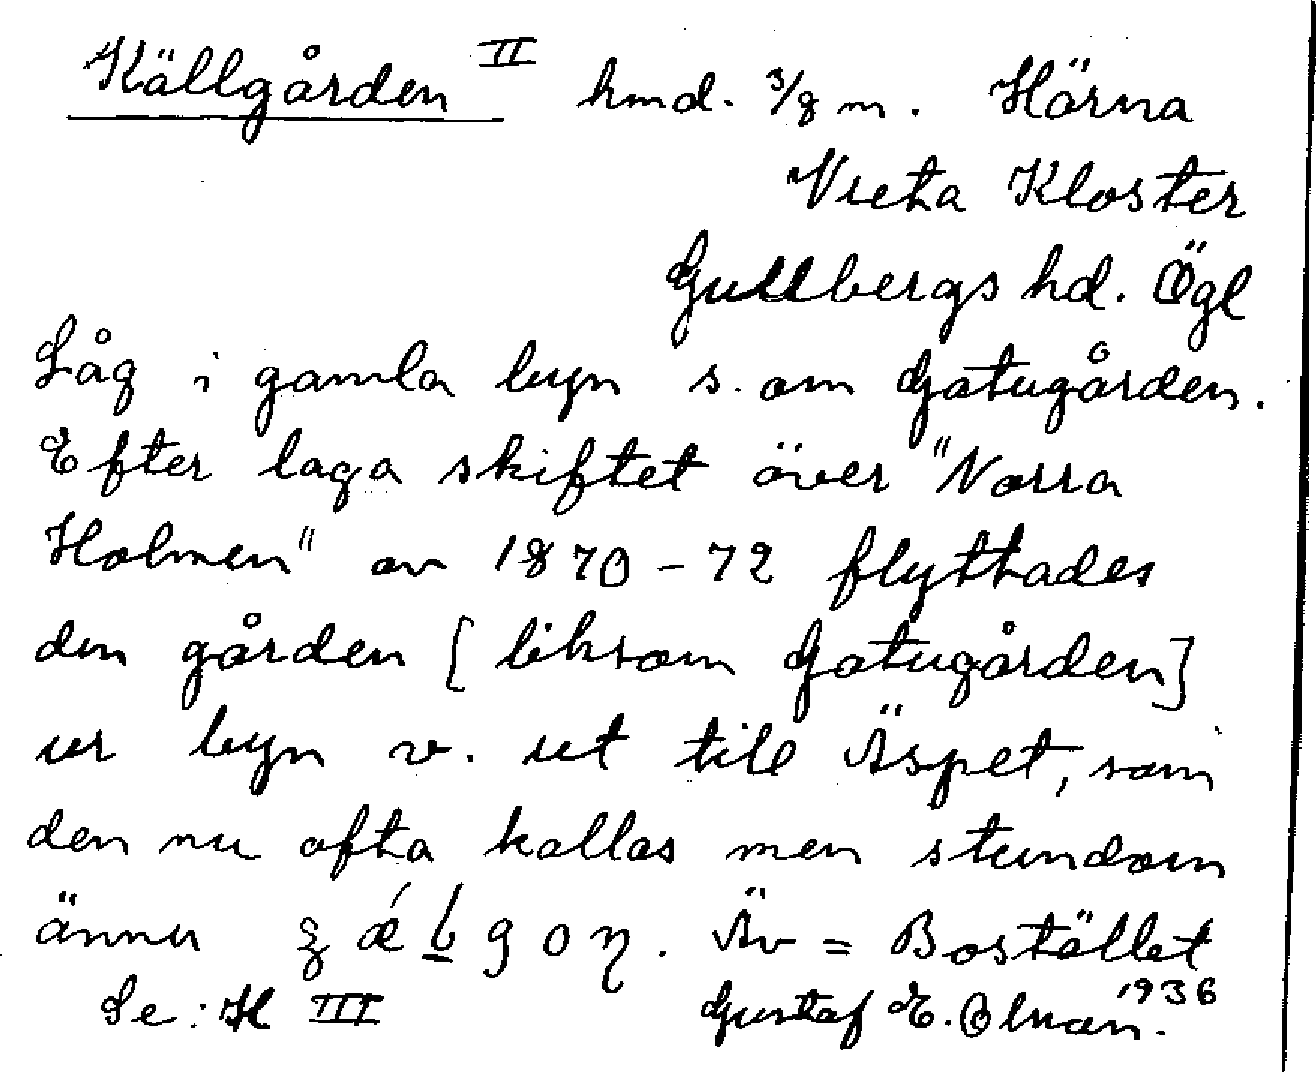 Källgården II hmd. 3/8 m. Härna
Vreta Kloster
Gullbergs hd. Ögl
Låg i gamla byn s. om Gatugården.
Efter laga skiftet över "Norra
Holmen" av 1870-72 flyttades
den gården [liksom Gatugården]
ur byn v. ut till Äspet, som
den nu ofta kallas men stundom
ännu . Äv = Bostället
Se: K III Gustaf E. Olman. 1936